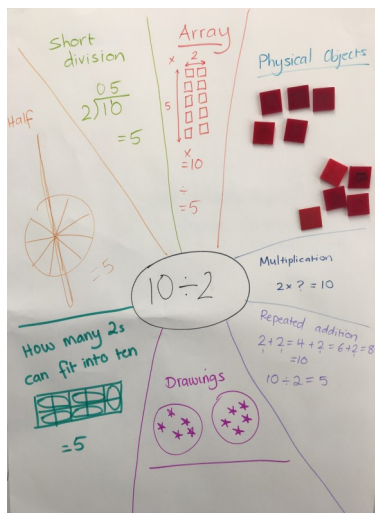 Short
division
05
2)10
=5
Array
x
2
5
x
=10
÷
=5
Physical Objects
Half
=5
10÷2
Multiplication
2x ? =10
Repeated addition
2+2=4+2=6+2=8
=10
10÷2=5
How many 2s
can fit into ten
=5
Drawings